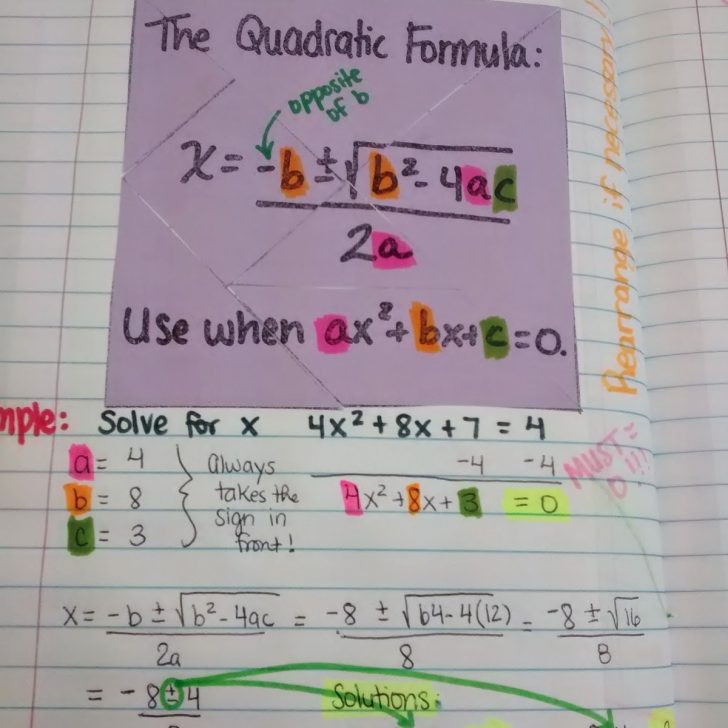 The Quadratic Formula:
opposite
of b
x = -b ± √b² - 4ac
2a
Use when ax² + bx + c = 0.
Rearrange if necessary
mple: Solve for x 4x² + 8x + 7 = 4
-4 -4
MUST =
0!!!
a = 4
b = 8
c = 3
Always
takes the
sign in
front!
4x² + 8x + 3 = 0
x = -b ± √b² - 4ac = -8 ± √64 - 4(12) = -8 ± √16
2a 8 8
= -8 ± 4
Solutions: